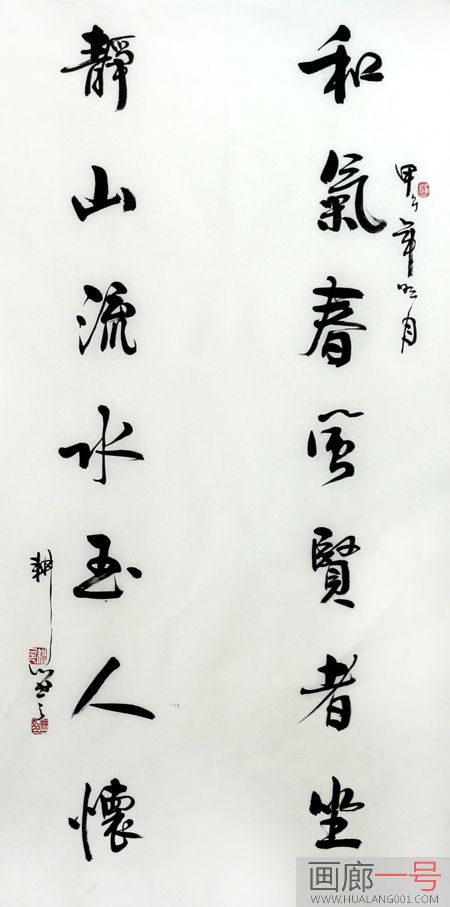 年
月
和氣春風賢者坐
靜山流水玉人懷
耕
画廊一号
WWW.HUALANG001.COM